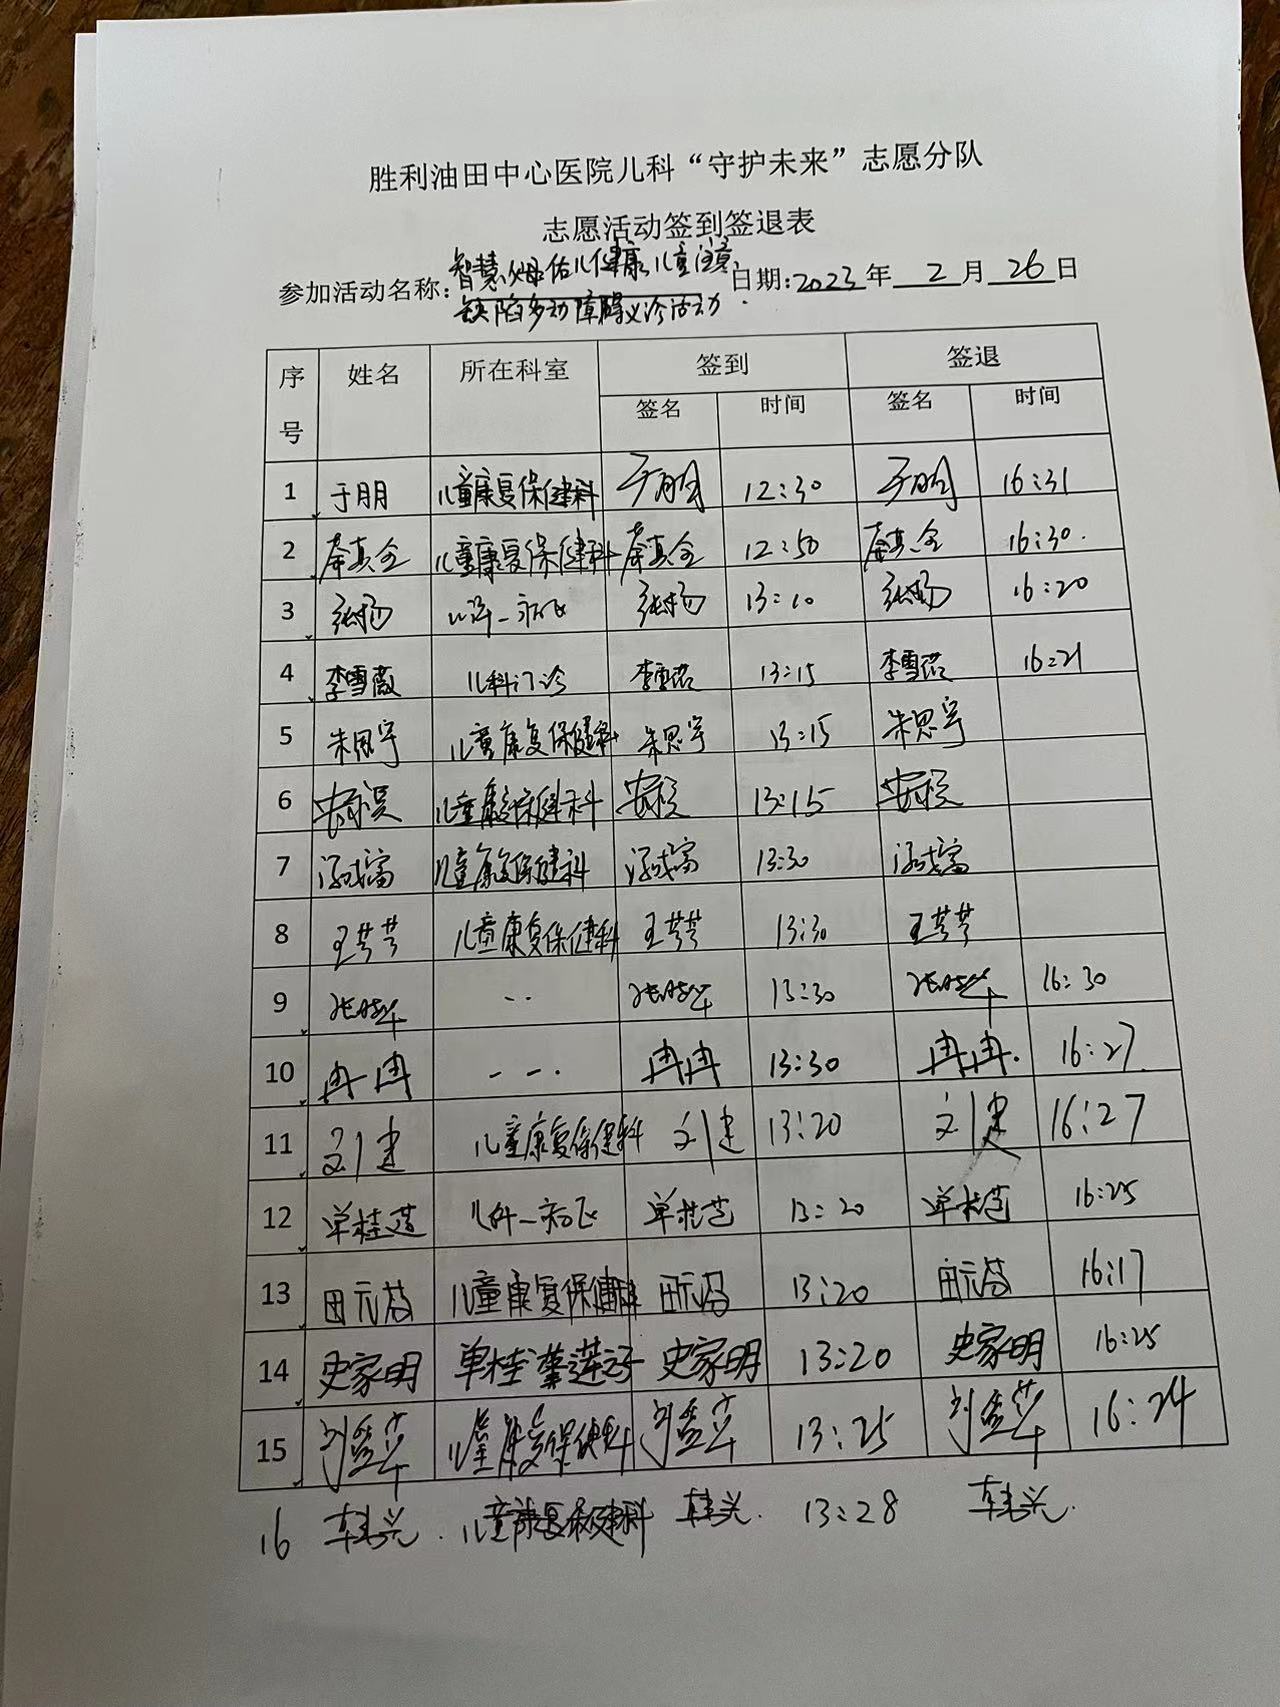 胜利油田中心医院儿科“守护未来”志愿分队
志愿活动签到签退表
参加活动名称：智慧父母佑儿健康，儿童注意 日期：2023年 2 月 26 日
缺陷多动障碍义诊活动
序号 姓名 所在科室 签到 签退
签名 时间 签名 时间
1 于朋 儿童康复保健科 于朋 12:30 于朋 16:31
2 秦真全 儿童康复保健科 秦真全 12:50 秦真全 16:30.
3 张扬 张扬 13:10 张扬 16:20
4 李雪薇 儿科门诊 李雪 13:15 李雪 16:21
5 朱思宇 儿童康复保健科 朱思宇 13:15 朱思宇
6 儿童康复保健科 13:15
7 儿童康复保健科 13:30
8 王芩芩 儿童康复保健科 王芩芩 13:30 王芩芩
9 张晓华 .. 张晓华 13:30 张晓华 16:30
10 冉冉 --. 冉冉 13:30 冉冉. 16:27.
11 刘建 儿童康复保健科 刘建 13:20 刘建 16:27
12 单桂莲 儿科一病区 单桂莲 13:20 单桂莲 16:25
13 田元 儿童康复保健科 田元 13:20 田元 16:17
14 史家明 单桂莲 史家明 13:20 史家明 16:25
15 刘孟华 儿童康复保健科 刘孟华 13:25 刘孟华 16:24
16 儿童康复保健科 13:28